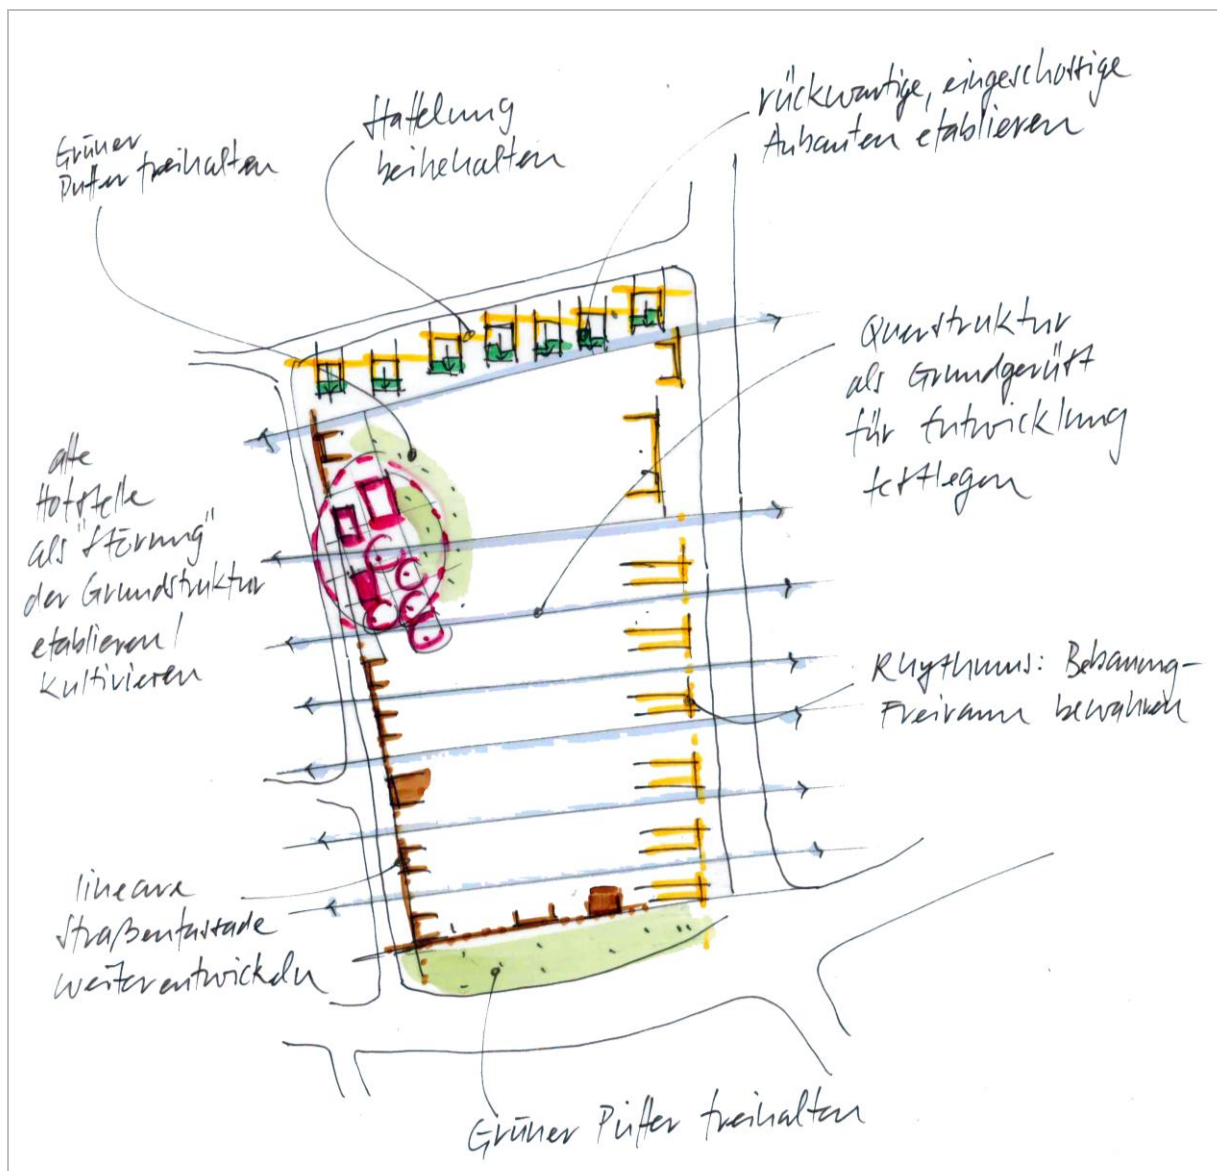 Grüner
Puffer freihalten
Staffelung
beibehalten
rückwärtige, eingeschossige
Anbauten etablieren
Querstruktur
als Grundgerüst
für Entwicklung
festlegen
alte
Hofstelle
als "Störung"
der Grundstruktur
etablieren/
kultivieren
Rhythmus: Bebauung-
Freiraum bewahren
lineare
Straßenfassade
weiterentwickeln
Grüner Puffer freihalten